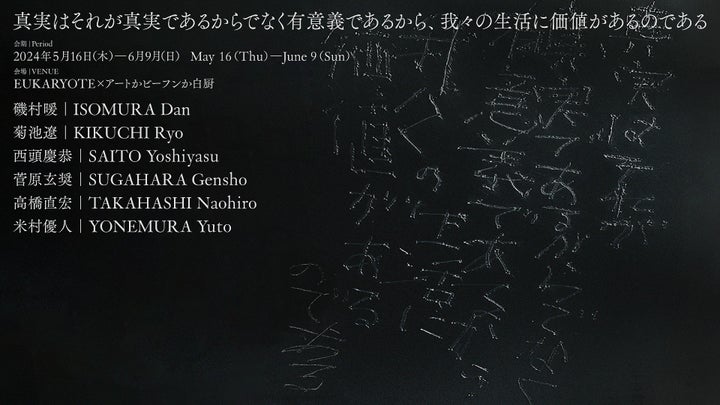 真実はそれが真実であるからでなく有意義であるから、我々の生活に価値があるのである
会期 | Period
2024年5月16日(木)—6月9日(日) May 16(Thu)—June 9(Sun)
会場 | VENUE
EUKARYOTE×アートかビーフンか白厨
磯村暖 | ISOMURA Dan
菊池遼 | KIKUCHI Ryo
西頭慶恭 | SAITO Yoshiyasu
菅原玄奨 | SUGAHARA Gensho
高橋直宏 | TAKAHASHI Naohiro
米村優人 | YONEMURA Yuto
真実はそれが
真実であるからでなく
有意義であるから
我々の生活に
価値がある
のである